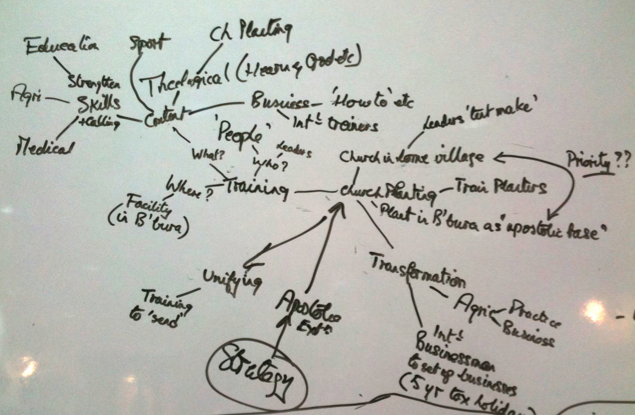 Ch Planting
Education
Sport
Theological (Hearing God etc)
Strengthen
Skills
+ Calling
Agri
Medical
Content
Business - 'How to' etc
Int'l trainers
'People'
Leaders
What?
Who?
Where?
Training
Facility
(in B'bura)
Leaders 'tent make'
Church in
village
Priority??
Church Planting
Train Planters
Plant in B'bura as "apostolic base"
Unifying
Training
to 'send'
Apostolic
Strategy
Transformation
Agri
Practice
Business
Int'l
Businessmen
to set up businesses
(5 yr tax holiday)